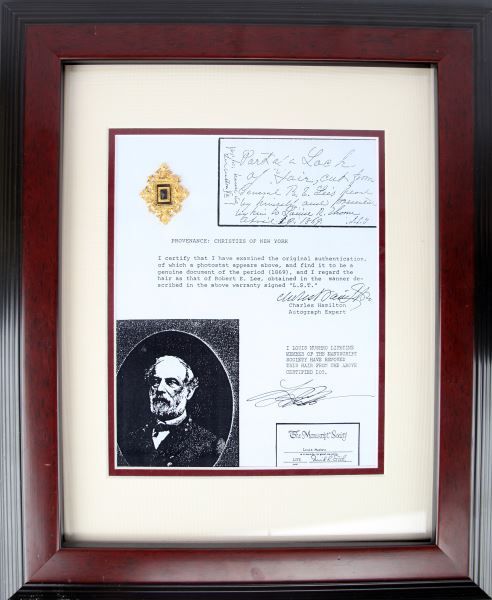 Part of a Lock
of Hair, cut from
General R. E. Lee's head
by himself and
given to Louise R.
April 1869. L.S.T.
PROVENANCE: CHRISTIES OF NEW YORK
I certify that I have examined the original authentication,
of which a photostat appears above, and find it to be a
genuine document of the period (1869), and I regard the
hair as that of Robert E. Lee, obtained in the manner de-
scribed in the above warranty signed "L.S.T."
Charles Hamilton
Charles Hamilton
Autograph Expert
I LOUIS MUSHRO
MEMBER OF THE MANUSCRIPT
SOCIETY HAVE REMOVED
THIS HAIR FROM THE ABOVE
CERTIFIED LOT.
The Manuscript Society
Louis Mushro